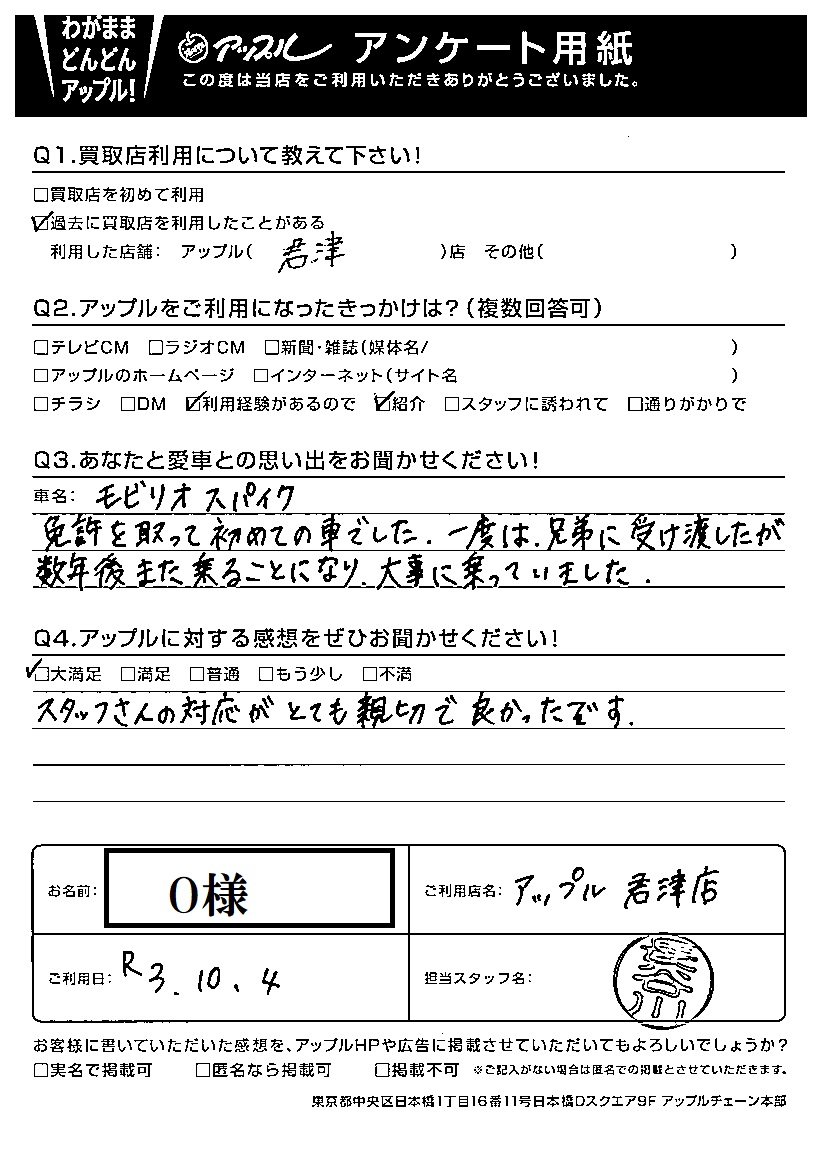 わがまま
どんどん
アップル!
アップル アンケート用紙
この度は当店をご利用いただきありがとうございました。
Q1.買取店利用について教えて下さい!
□買取店を初めて利用
☑過去に買取店を利用したことがある
利用した店舗: アップル( 君津 )店 その他( )
Q2.アップルをご利用になったきっかけは?(複数回答可)
□テレビCM □ラジオCM □新聞・雑誌(媒体名/ )
□アップルのホームページ □インターネット(サイト名 )
□チラシ □DM ☑利用経験があるので ☑紹介 □スタッフに誘われて □通りがかりで
Q3.あなたと愛車との思い出をお聞かせください!
車名: モビリオスパイク
免許を取って初めての車でした.一度は.兄弟に受け渡したが
数年後また乗ることになり.大事に乗っていました.
Q4.アップルに対する感想をぜひお聞かせください!
☑大満足 □満足 □普通 □もう少し □不満
スタッフさんの対応がとても親切で良かったです.
お名前: O様 ご利用店名: アップル君津店
ご利用日: R3.10.4 担当スタッフ名:
お客様に書いていただいた感想を、アップルHPや広告に掲載させていただいてもよろしいでしょうか?
□実名で掲載可 □匿名なら掲載可 □掲載不可 ※ご記入がない場合は匿名での掲載とさせていただきます。
東京都中央区日本橋1丁目16番11号日本橋Dスクエア9F アップルチェーン本部